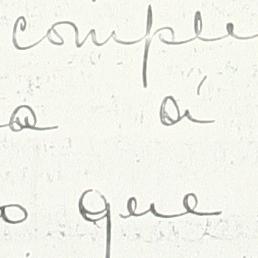 comple
a aí
o que